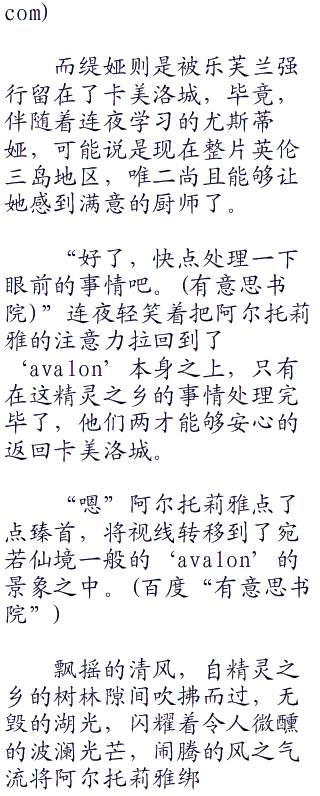 com)
而缇娅则是被乐芙兰强
行留在了卡美洛城，毕竟，
伴随着连夜学习的尤斯蒂
娅，可能说是现在整片英伦
三岛地区，唯二尚且能够让
她感到满意的厨师了。
“好了，快点处理一下
眼前的事情吧。(有意思书
院)”连夜轻笑着把阿尔托莉
雅的注意力拉回到了
‘avalon’本身之上，只有
在这精灵之乡的事情处理完
毕了，他们两才能够安心的
返回卡美洛城。
“嗯”阿尔托莉雅点了
点臻首，将视线转移到了宛
若仙境一般的‘avalon’的
景象之中。(百度“有意思书
院”)
飘摇的清风，自精灵之
乡的树林隙间吹拂而过，无
毁的湖光，闪耀着令人微醺
的波澜光芒，闹腾的风之气
流将阿尔托莉雅绑